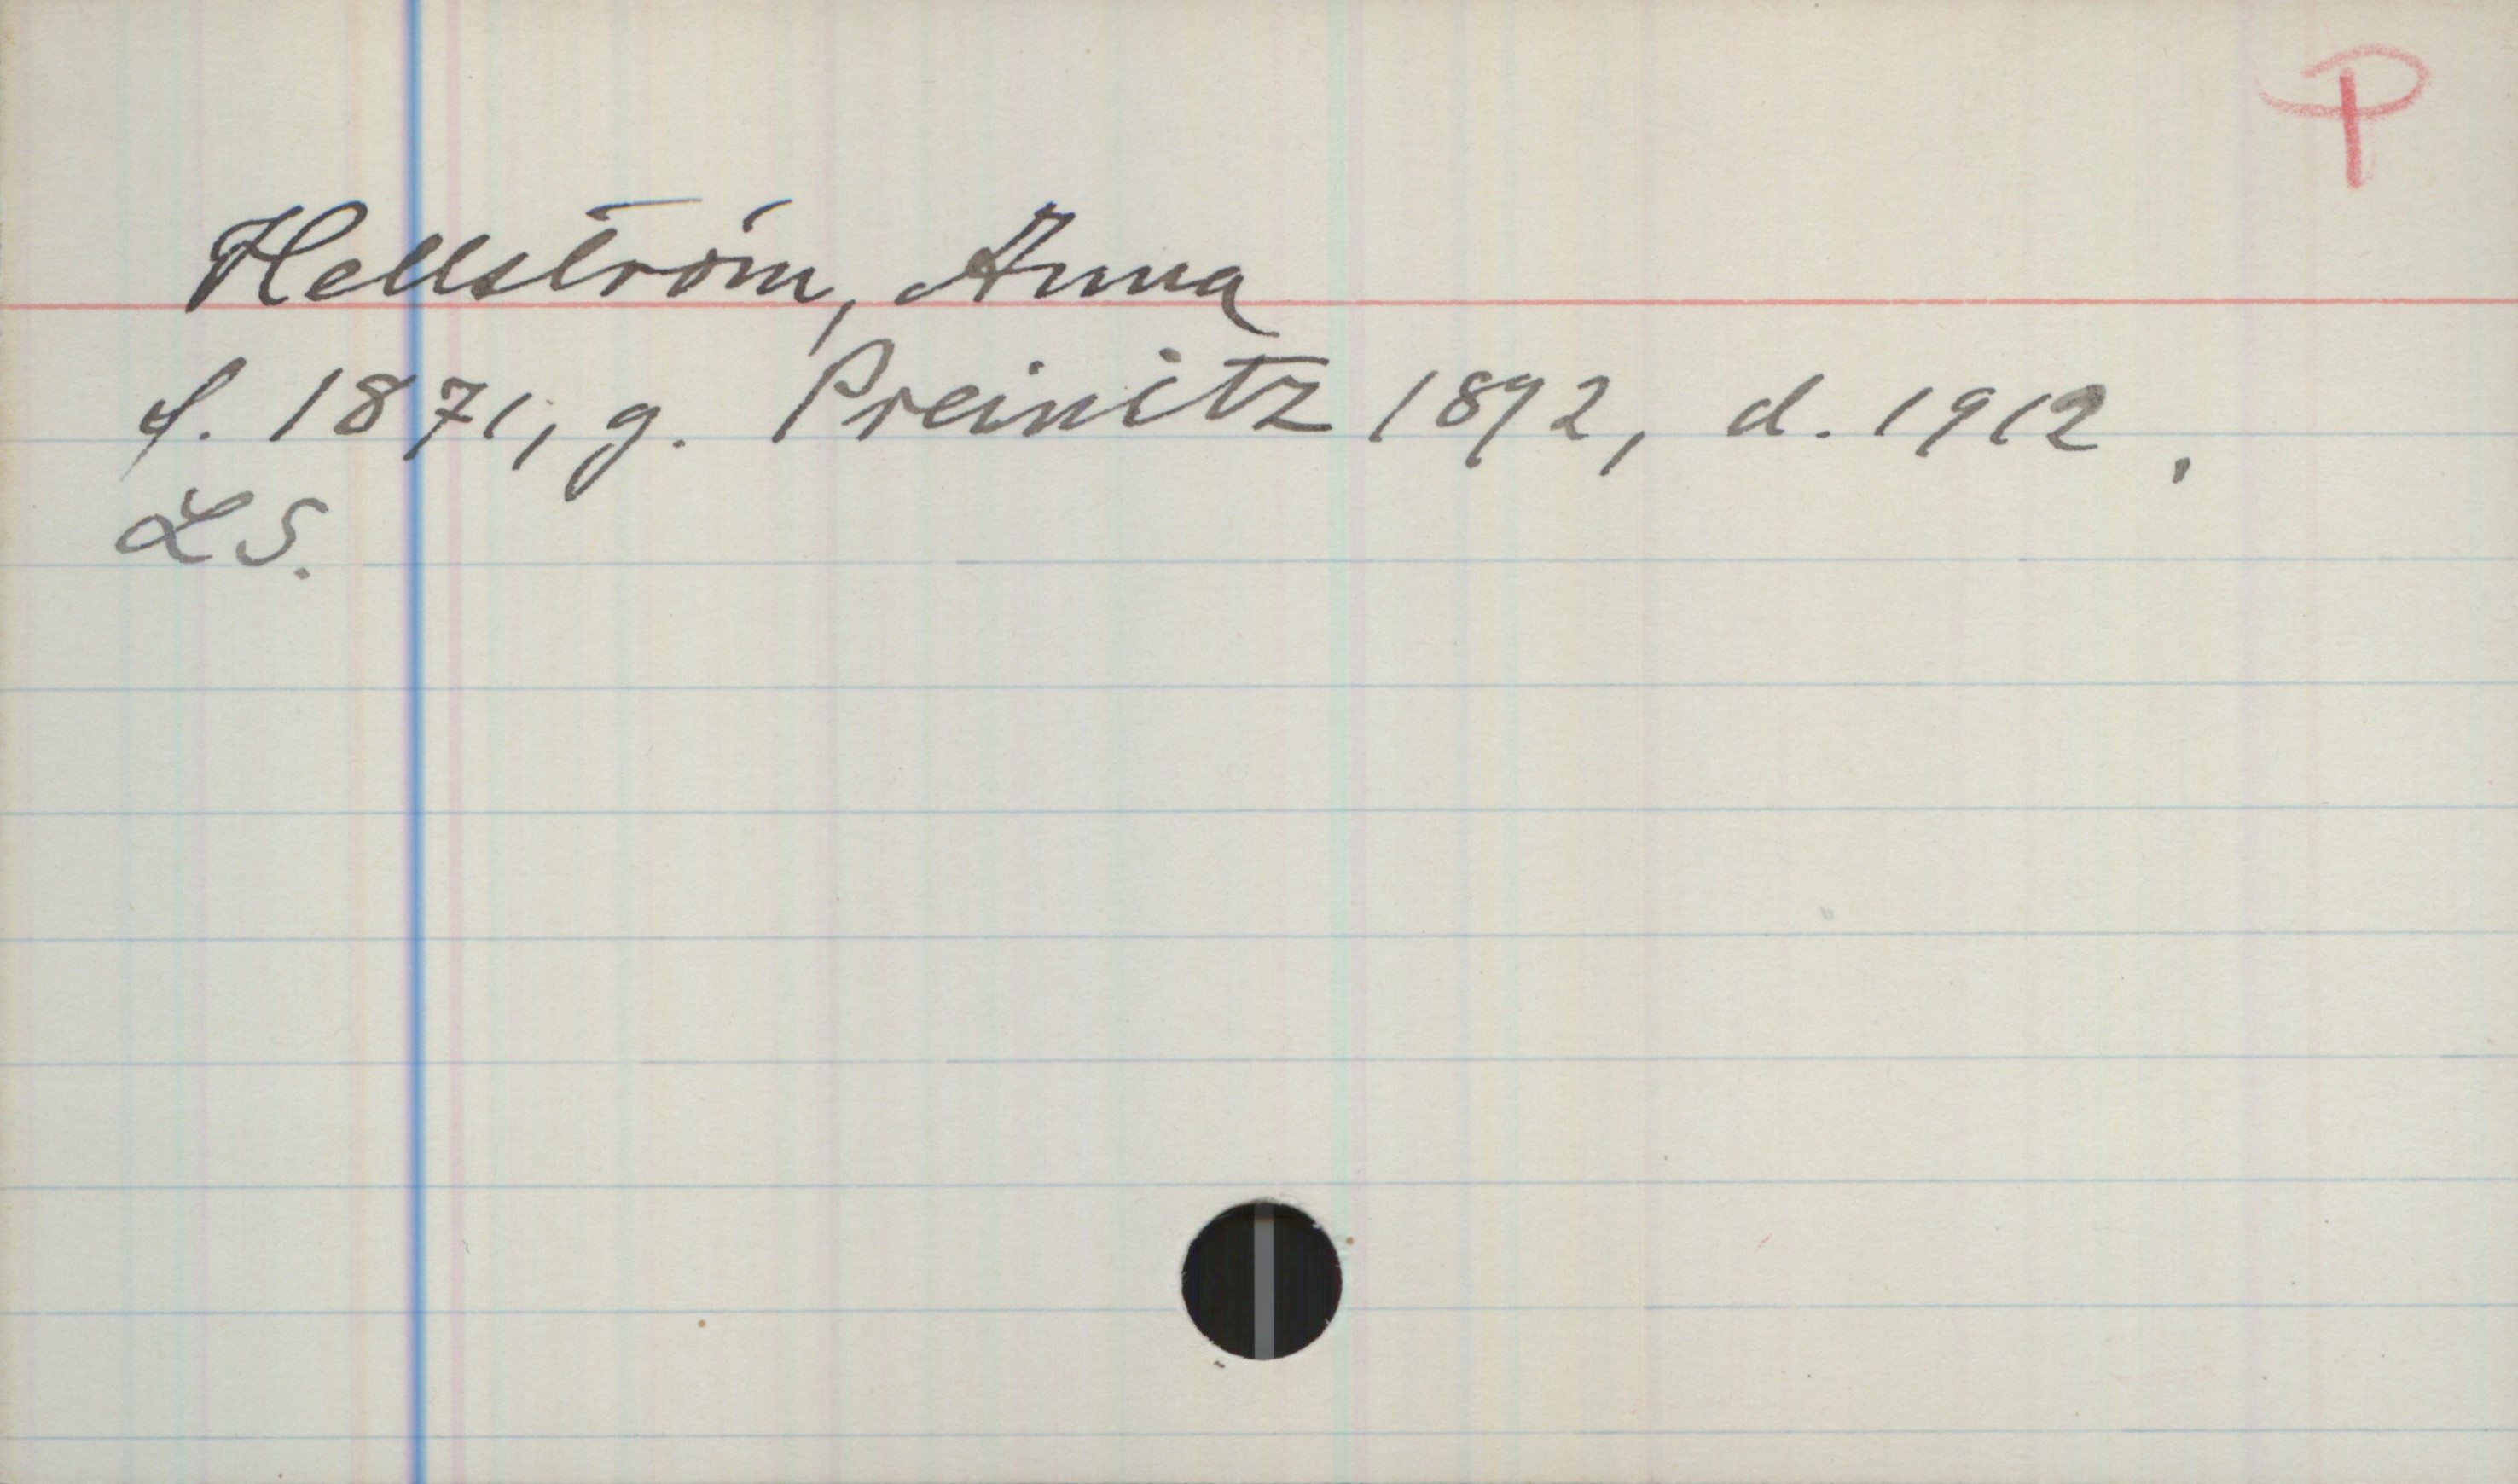 P
Hellström, Anna
f. 1871, g. Preinitz 1892, d. 1912.
LS.